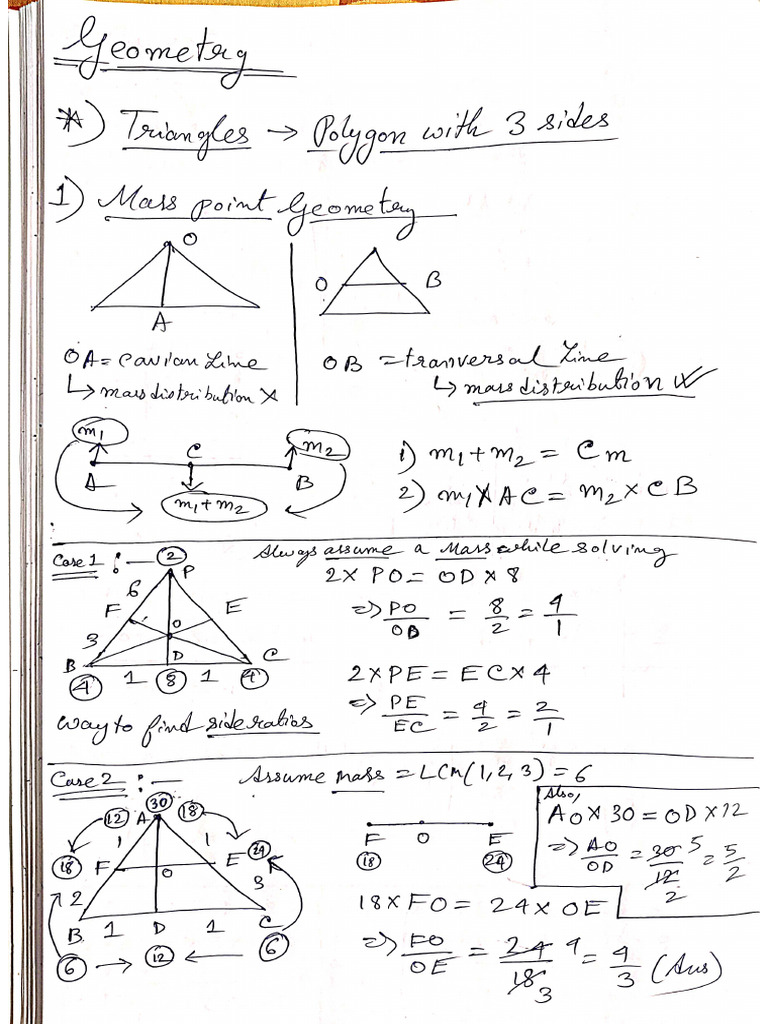 Geometry
*) Triangles → Polygon with 3 sides
1) Mass point Geometry
O
A
O B
OA = cavian Line
↳ mass distribution X
OB = tranversal Line
↳ mass distribution ✓
m₁ C m₂
A B
m₁+m₂
1) m₁+m₂ = Cm
2) m₁XAC = m₂ × CB
Case 1 :- Always assume a Mass while solving
2
P
6
F E
O
3
B D C
4 1 8 1 4
way to find side ratios
2 × PO = OD × 8
=> PO/OD = 8/2 = 4/1
2 × PE = EC × 4
=> PE/EC = 4/2 = 2/1
Case 2 :- Assume mass = LCM(1,2,3) = 6
30
12 A 18
1 1
18 F O E 24
2 3
B 1 D 1 C
6 → 12 ← 6
F O E
18 24
Also,
AO × 30 = OD × 12
=> AO/OD = 30/12 5/2 = 5/2
18 × FO = 24 × OE
=> FO/OE = 24/18 4/3 = 4/3 (Ans)